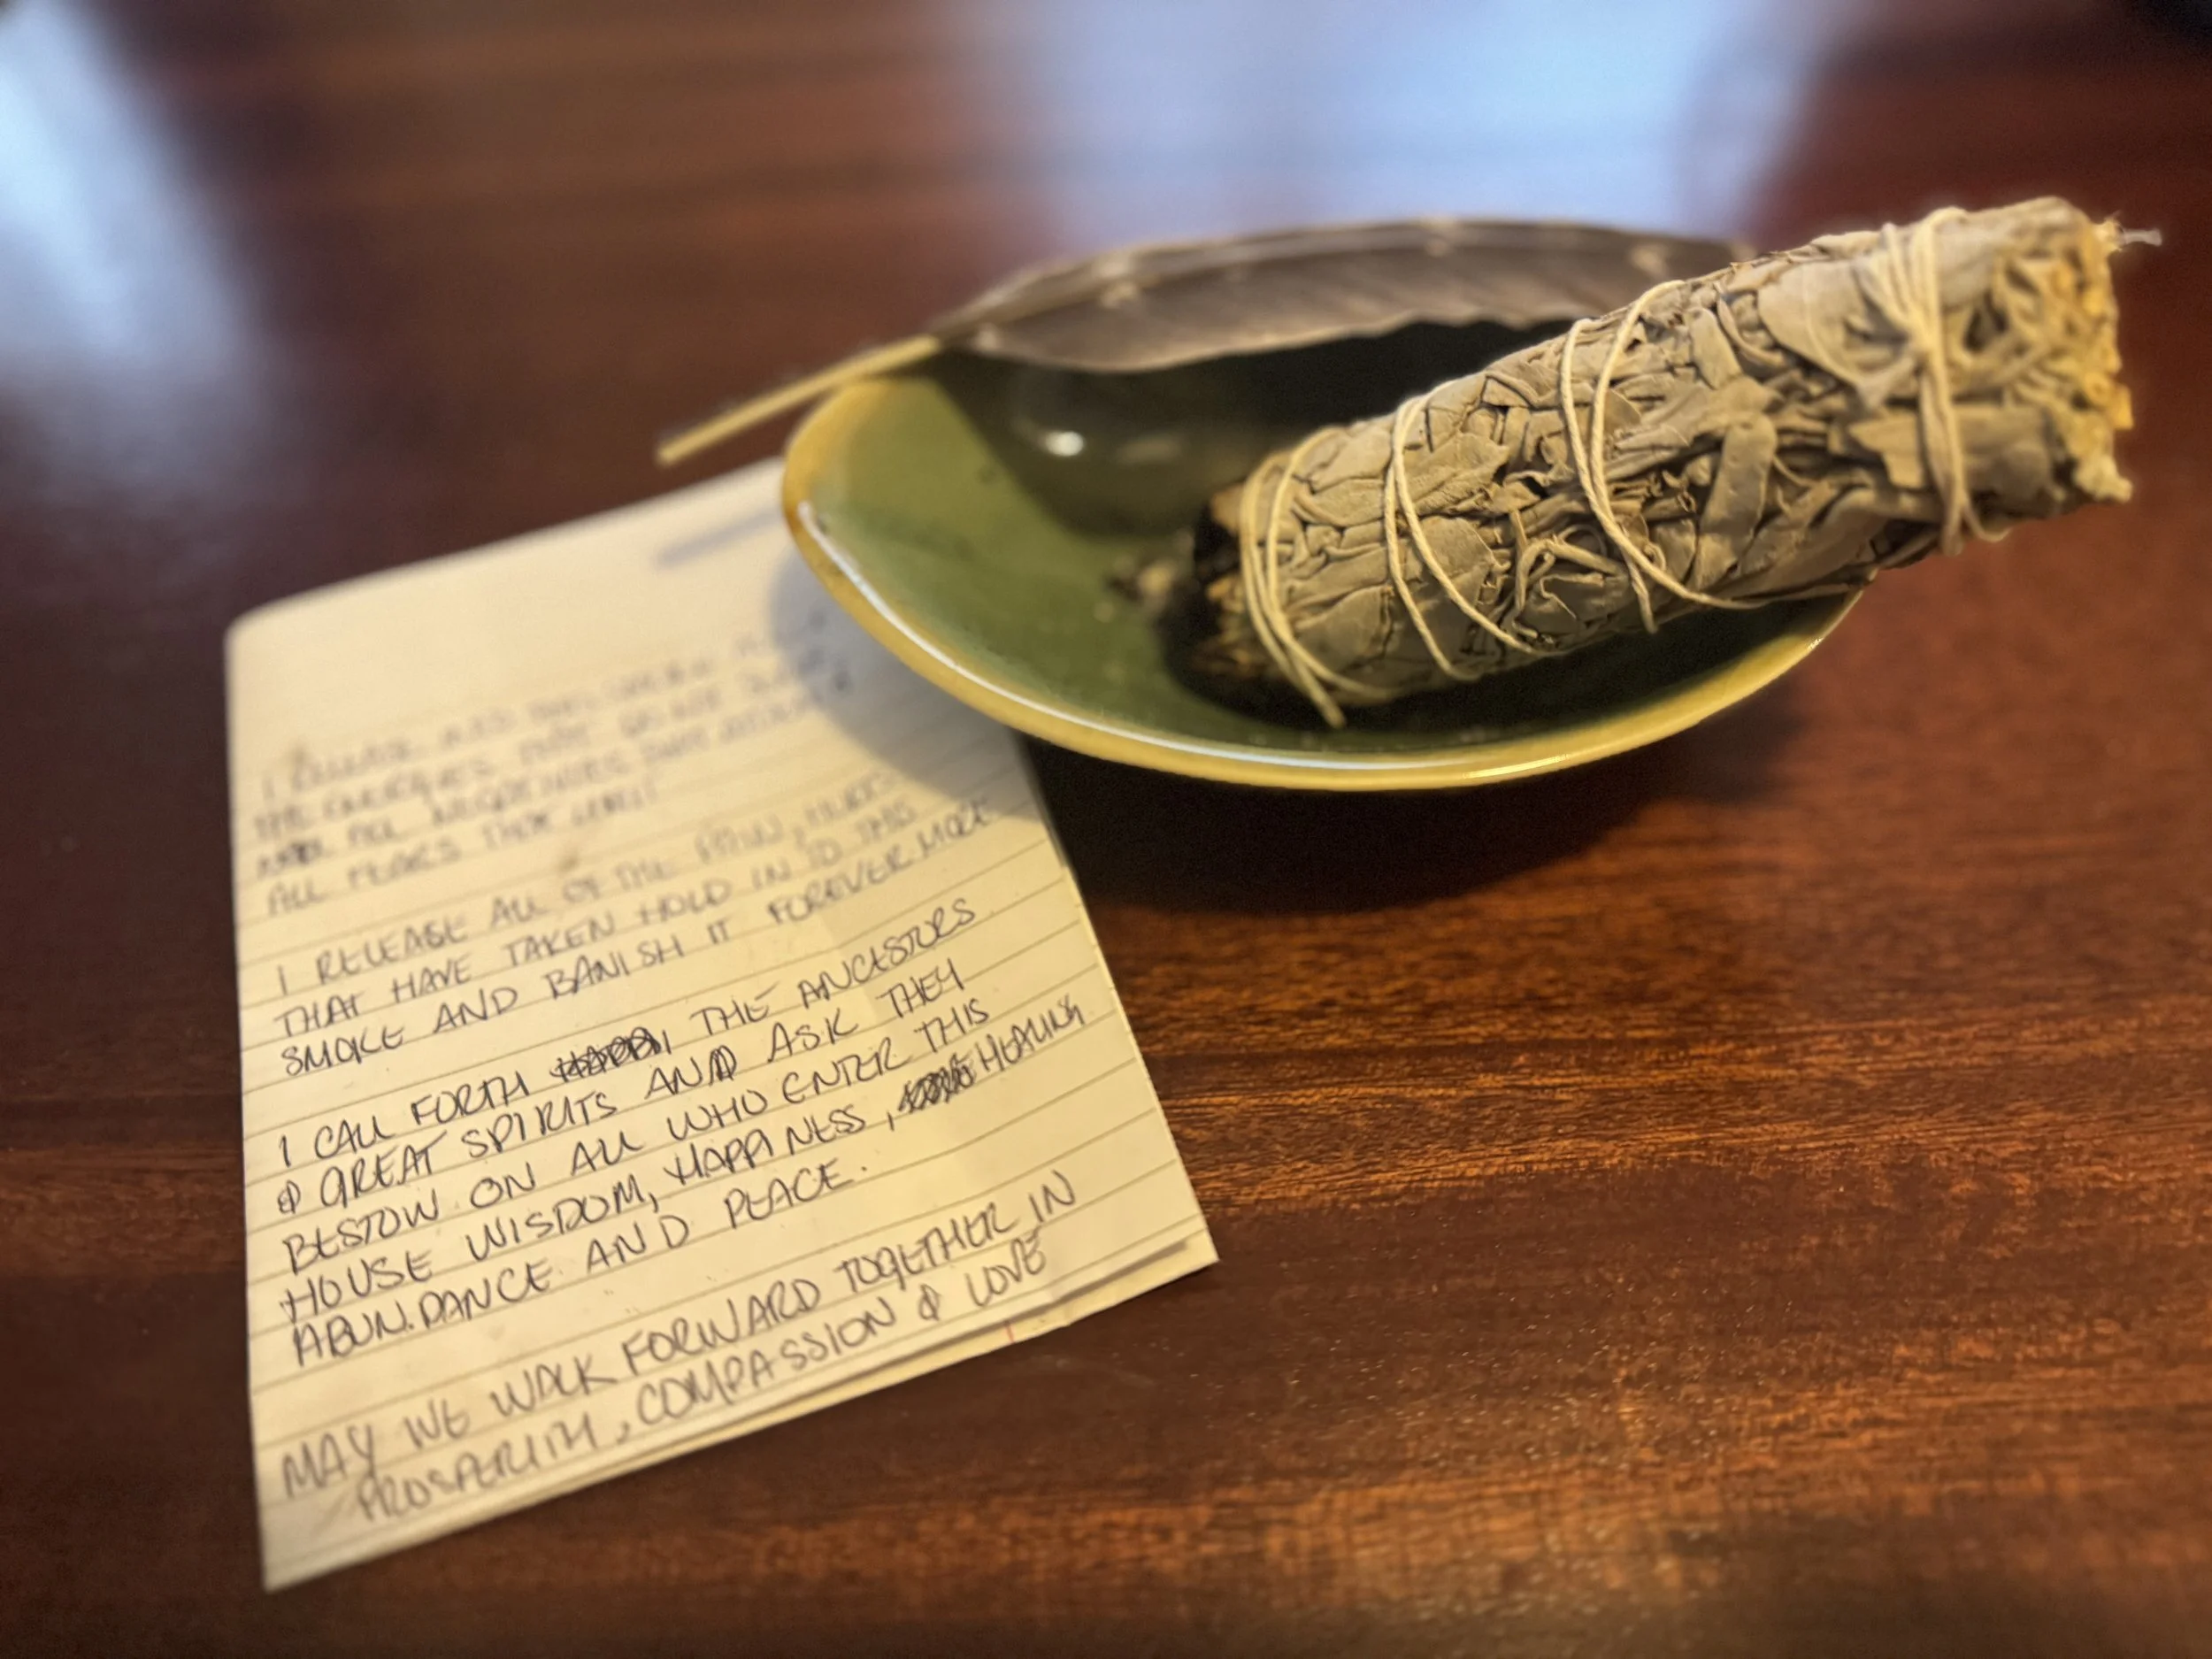 I RELEASE AND
THE ENERGIES THAT DO NOT
ALL NEGATIVITIES THAT
ALL FEARS THAT
I RELEASE ALL OF THE PAIN,
THAT HAVE TAKEN HOLD IN TO THIS
SMOKE AND BANISH IT FOREVER MORE
I CALL FORTH THE ANCESTORS
& GREAT SPIRITS AND ASK THEY
BESTOW ON ALL WHO ENTER THIS
HOUSE WISDOM, HAPPINESS, HEALING
ABUNDANCE AND PEACE.
MAY WE WALK FORWARD TOGETHER IN
PROSPERITY, COMPASSION & LOVE